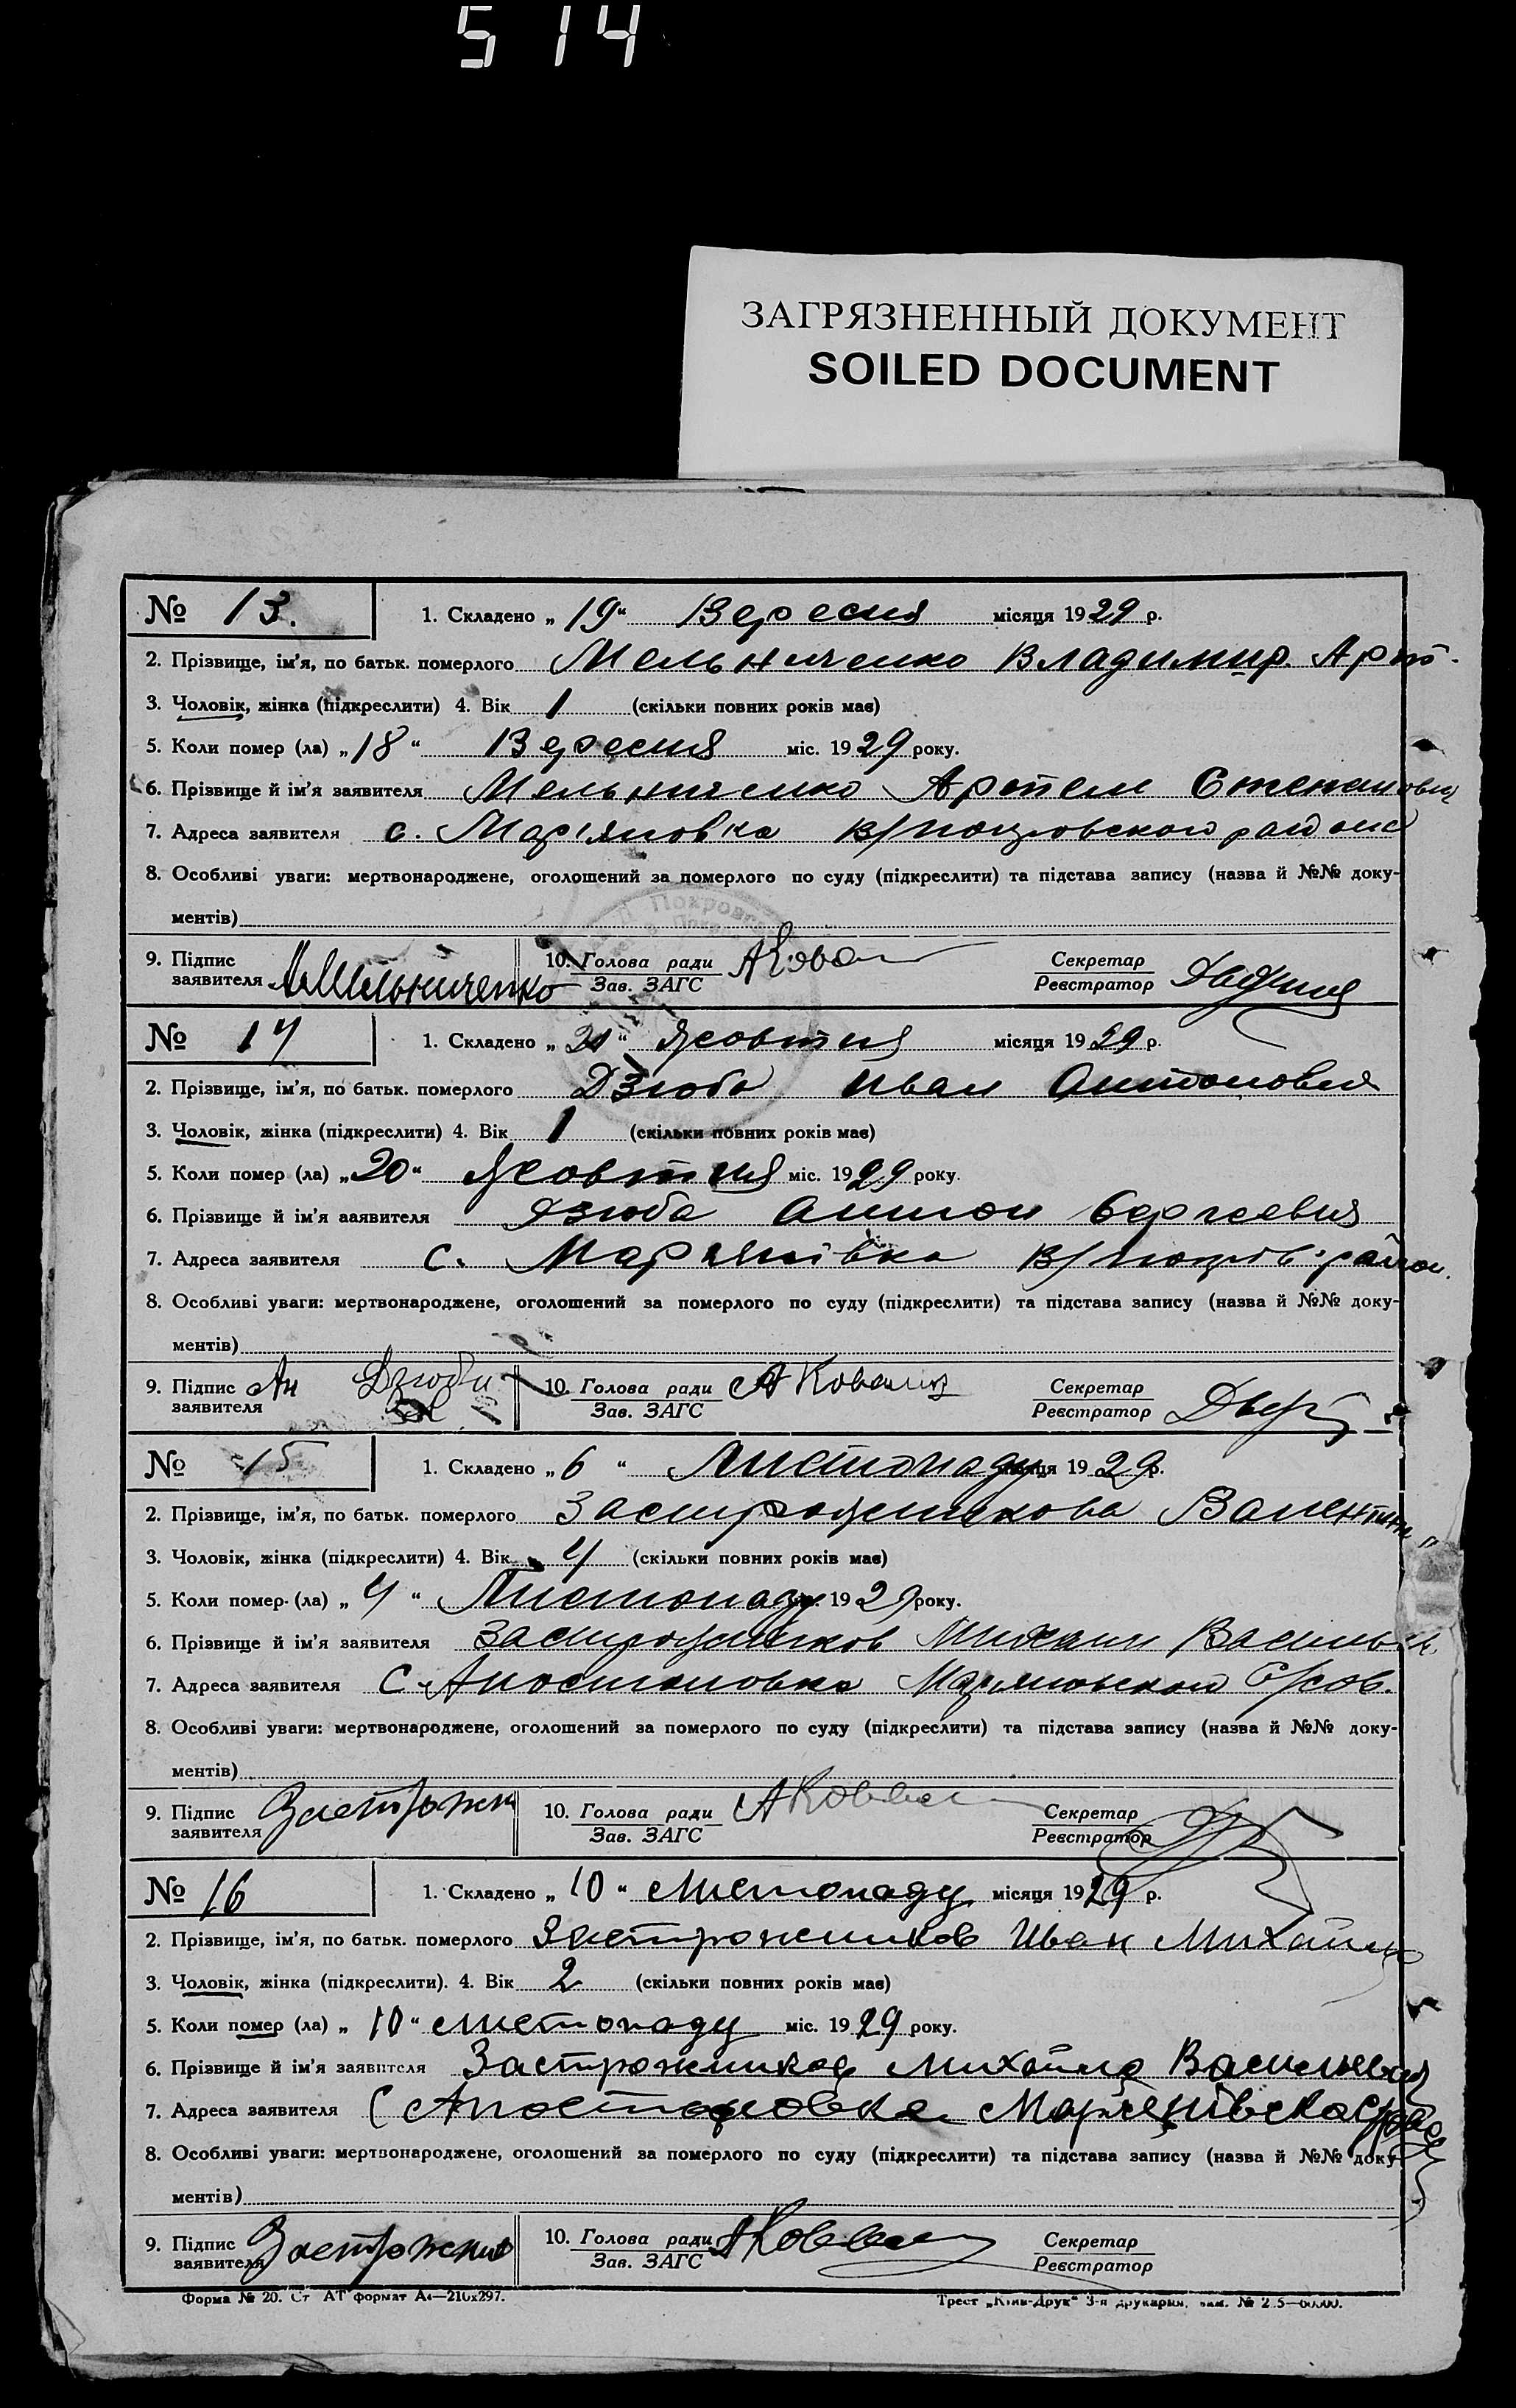 514
ЗАГРЯЗНЕННЫЙ ДОКУМЕНТ
SOILED DOCUMENT
№ 13. 1. Складено „19“ Вересня місяця 1929 р.
2. Прізвище, ім'я, по батьк. померлого Мельниченко Владимир Арт.
3. Чоловік, жінка (підкреслити) 4. Вік 1 (скільки повних років має)
5. Коли помер (ла) „18“ Вересня міс. 1929 року.
6. Прізвище й ім'я заявителя Мельниченко Артем Степанович
7. Адреса заявителя с. Мар'яновка
8. Особливі уваги: мертвонароджене, оголошений за померлого по суду (підкреслити) та підстава запису (назва й №№ доку-
ментів)
9. Підпис заявителя Мельниченко 10. Голова ради Зав. ЗАГС АКова Секретар Реєстратор
№ 14 1. Складено „ “ Жовтня місяця 1929 р.
2. Прізвище, ім'я, по батьк. померлого Дзюба Иван Антонович
3. Чоловік, жінка (підкреслити) 4. Вік 1 (скільки повних років має)
5. Коли помер (ла) „20“ Жовтня міс. 1929 року.
6. Прізвище й ім'я ааявителя Дзюба Антон Сергеевич
7. Адреса заявителя с. Мар'янівка
8. Особливі уваги: мертвонароджене, оголошений за померлого по суду (підкреслити) та підстава запису (назва й №№ доку-
ментів)
9. Підпис заявителя Ан Дзюба 10. Голова ради Зав. ЗАГС АКовализ Секретар Реєстратор
№ 15 1. Складено „6“ Листопаду місяця 1929 р.
2. Прізвище, ім'я, по батьк. померлого Застрожникова Валентина
3. Чоловік, жінка (підкреслити) 4. Вік 4 (скільки повних років має)
5. Коли помер (ла) „4“ Листопаду 1929 року.
6. Прізвище й ім'я заявителя Застрожников Михаил Василь
7. Адреса заявителя с. Апостоловка
8. Особливі уваги: мертвонароджене, оголошений за померлого по суду (підкреслити) та підстава запису (назва й №№ доку-
ментів)
9. Підпис заявителя Застрожни 10. Голова ради Зав. ЗАГС Секретар Реєстратор
№ 16 1. Складено „10“ листопаду місяця 1929 р.
2. Прізвище, ім'я, по батьк. померлого Застрожников Иван Михайл
3. Чоловік, жінка (підкреслити). 4. Вік 2 (скільки повних років має)
5. Коли помер (ла) „10“ листопаду міс. 1929 року.
6. Прізвище й ім'я заявителя Застрожников Михайло Васильевич
7. Адреса заявителя с Апостоловка
8. Особливі уваги: мертвонароджене, оголошений за померлого по суду (підкреслити) та підстава запису (назва й №№ доку-
ментів)
9. Підпис заявителя Застрожнив 10. Голова ради Зав. ЗАГС Секретар Реєстратор
Форма № 20. Ст АТ формат А4—210х297. Трест „Київ-Друк“ 3-я друкарня,